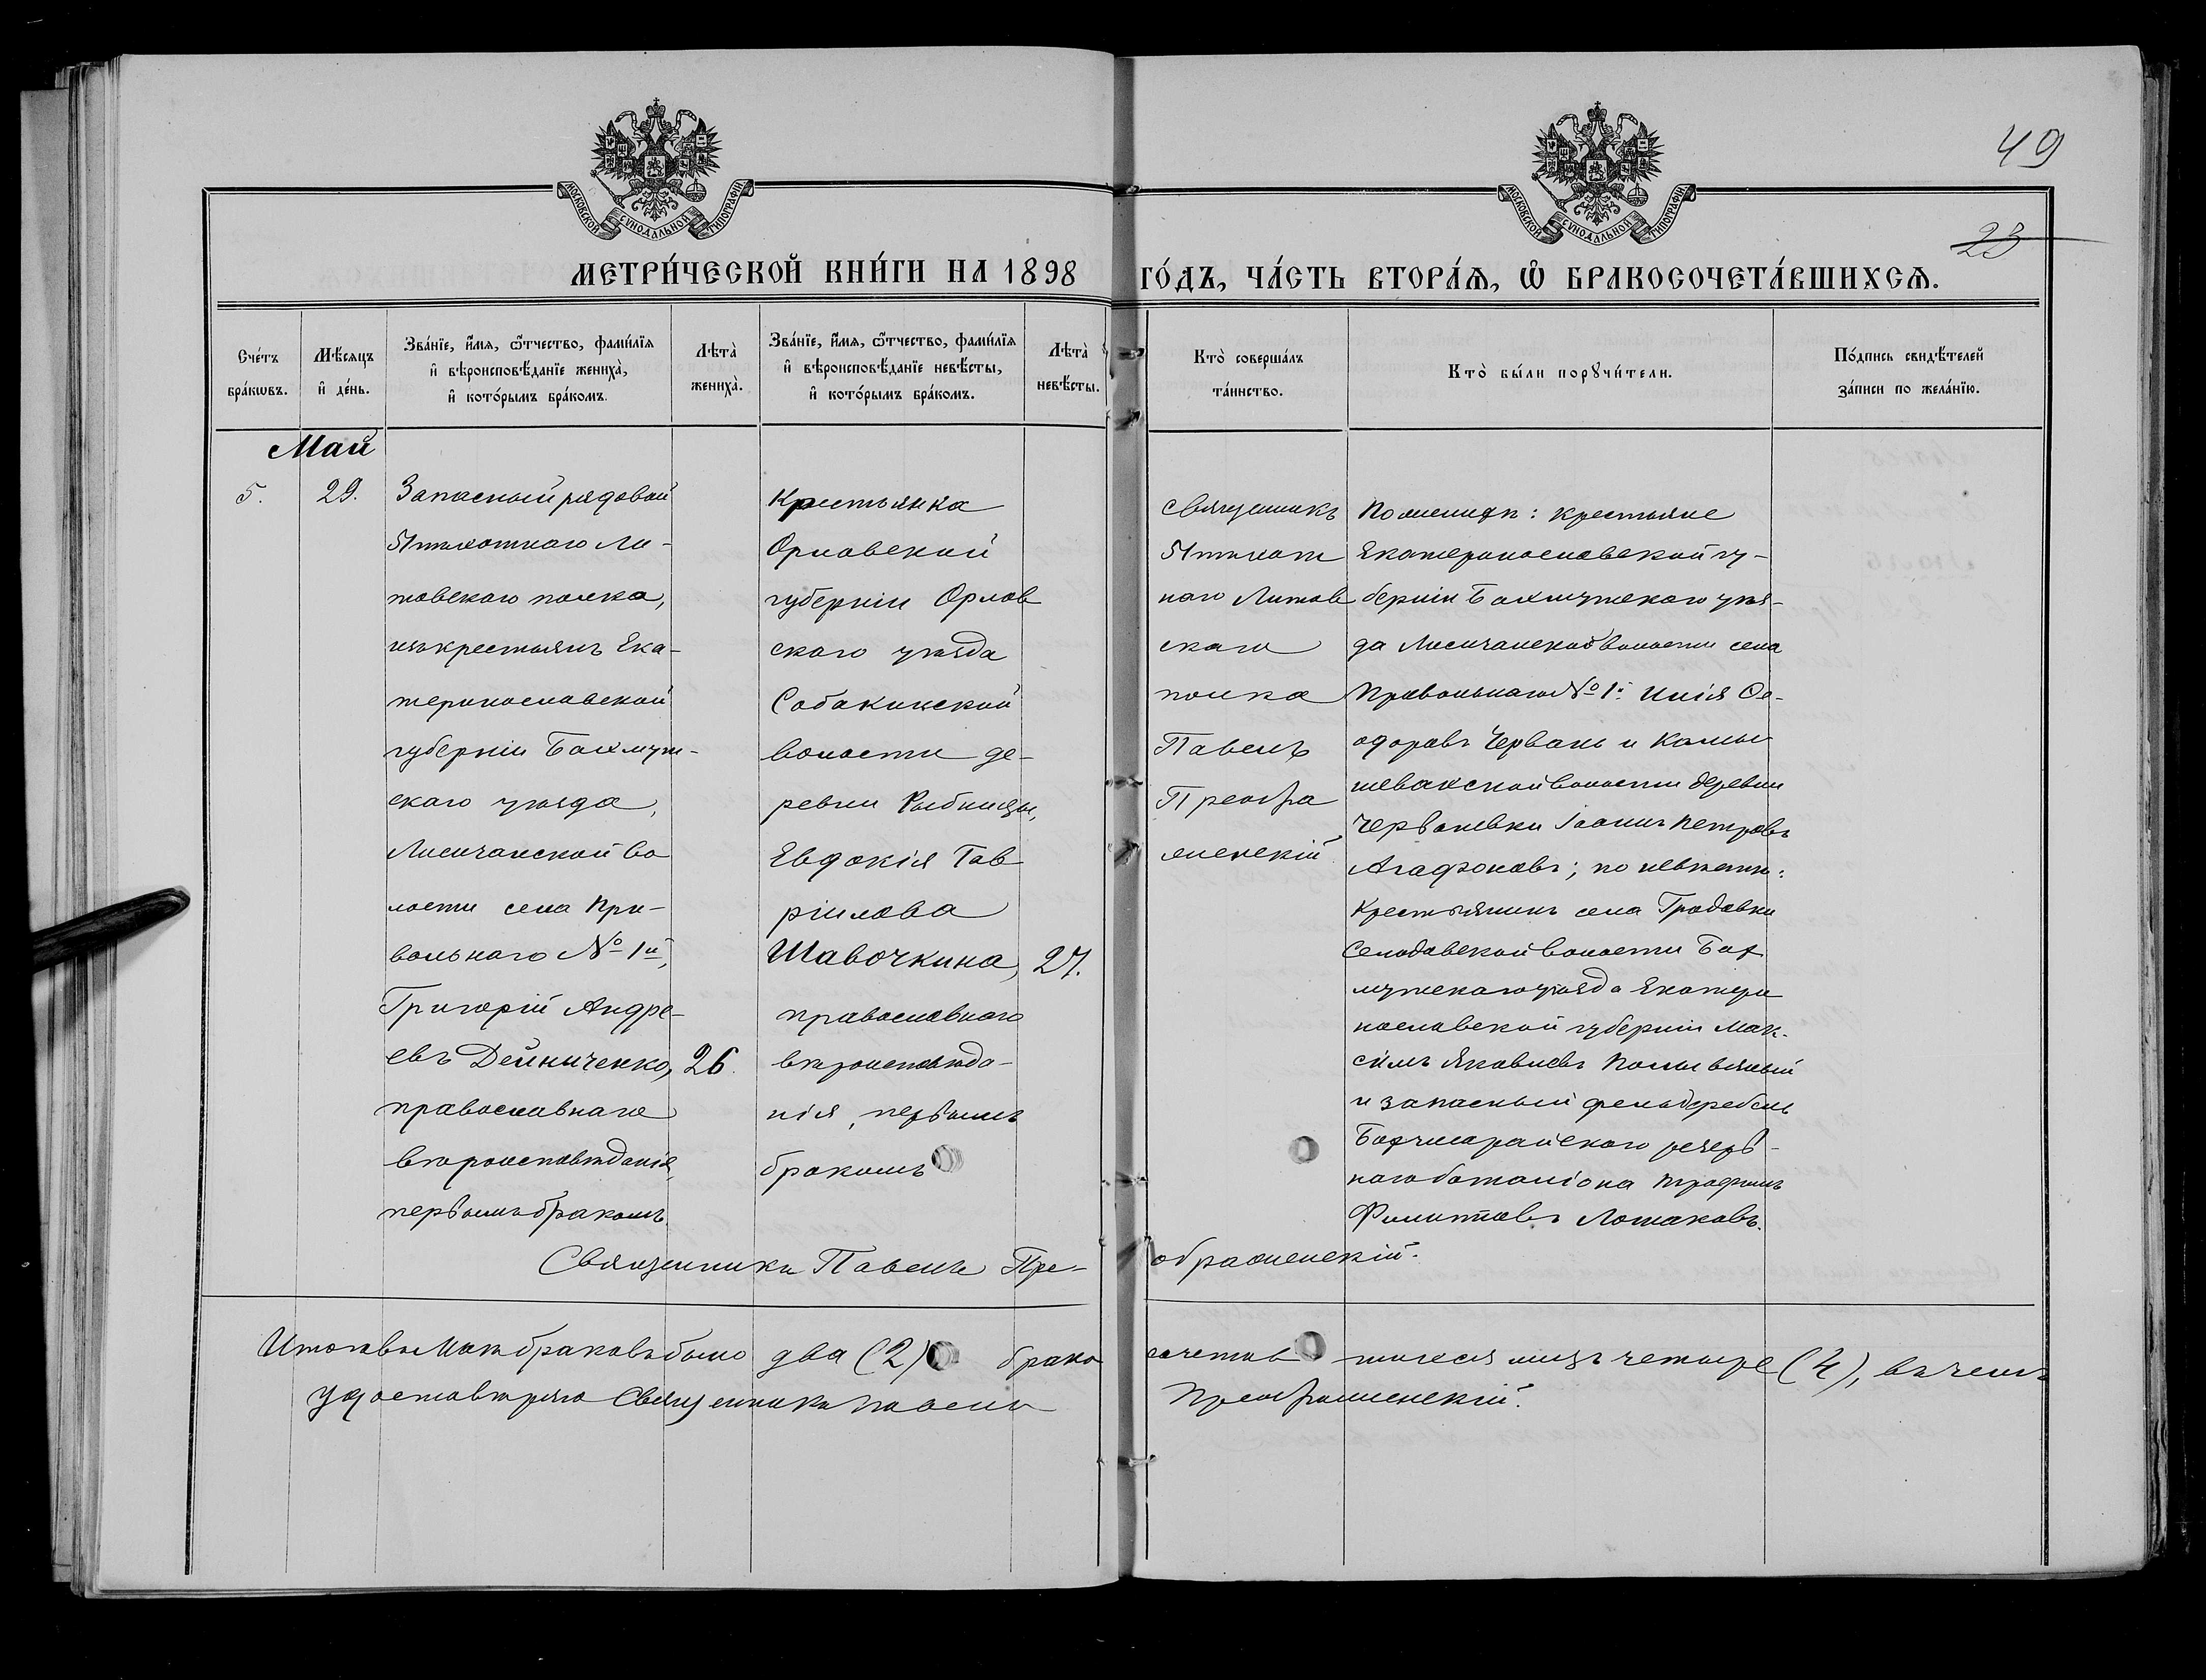 49
23
МОСКОВСКОЙ СѴНОДАЛЬНОЙ ТИПОГРАФІИ
МОСКОВСКОЙ СѴНОДАЛЬНОЙ ТИПОГРАФІИ
МЕТРИ́ЧЕСКОЙ КНИ́ГИ НА 1898 ГО́ДЪ, ЧА́СТЬ ВТОРА́Ѧ, Ѽ БРАКОСОЧЕТА́ВШИХСѦ.
Сче́тъ
бра́кѡвъ.
Мѣ́сяцъ
и҆ де́нь.
Зва́нїе, и҆́мѧ, ѻ҆́тчество, фами́лїѧ
и҆ вѣроисповѣ́данїе жениха̀,
и҆ кото́рымъ бра́комъ.
Лѣта̀
жениха̀.
Зва́нїе, и҆́мѧ, ѻ҆́тчество, фами́лїѧ
и҆ вѣроисповѣ́данїе невѣ́сты,
и҆ кото́рымъ бра́комъ.
Лѣта̀
невѣ́сты.
Кто̀ соверша́лъ
та́инство.
Кто̀ бы́ли порꙋчи́тели.
По́дпись свидѣ́телей
за́писи по жела́нїю.
Май
5.
29.
Запасный рядовой
51 пѣхотнаго Ли-
товскаго полка,
изъ крестьянъ Ека-
теринославской
губерніи Бахмут-
скаго уѣзда,
Лисичанской во
лости села При-
вольнаго № 1й,
Григорій Андре-
евъ Дейниченко,
православнаго
вѣроисповѣданія,
первымъ бракомъ.
26.
Крестьянка
Орловской
губерніи Орлов
скаго уѣзда
Собакинской
волости де-
ревни Рыбницы,
Евдокія Гав
ріилова
Шавочкина,
православнаго
вѣроисповѣда-
нія, первымъ
бракомъ
27.
Священникъ
51 пѣхот
наго Литов
скаго
полка
Павелъ
Преобра
женскій.
По женихѣ: крестьяне
Екатеринославской гу-
берніи Бахмутскаго уѣз-
да Лисичанской волости села
Привольнаго № 1й Илія Ѳе-
одоровъ Червань и Камы
шевахской волости деревни
Іоаннъ Петровъ
Агафоновъ; по невѣстѣ:
Крестьянинъ села Гродовки
волости Бах
мутскаго уѣзда Екатери
нославской губерніи Мак-
симъ Яковлевъ
и запасный фельдфебель
Бахчисарайскаго резерв-
наго баталіона Трофимъ
Филиповъ Лошаковъ.
Священникъ Павелъ Преображенскій.
Итого въ Маѣ браковъ было два (2) бракосочетавшихся лицъ четыре (4), въ чемъ
удостовѣряю Священникъ Павелъ Преображенскій.